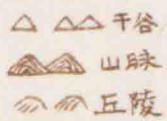 干谷
山脉
丘陵